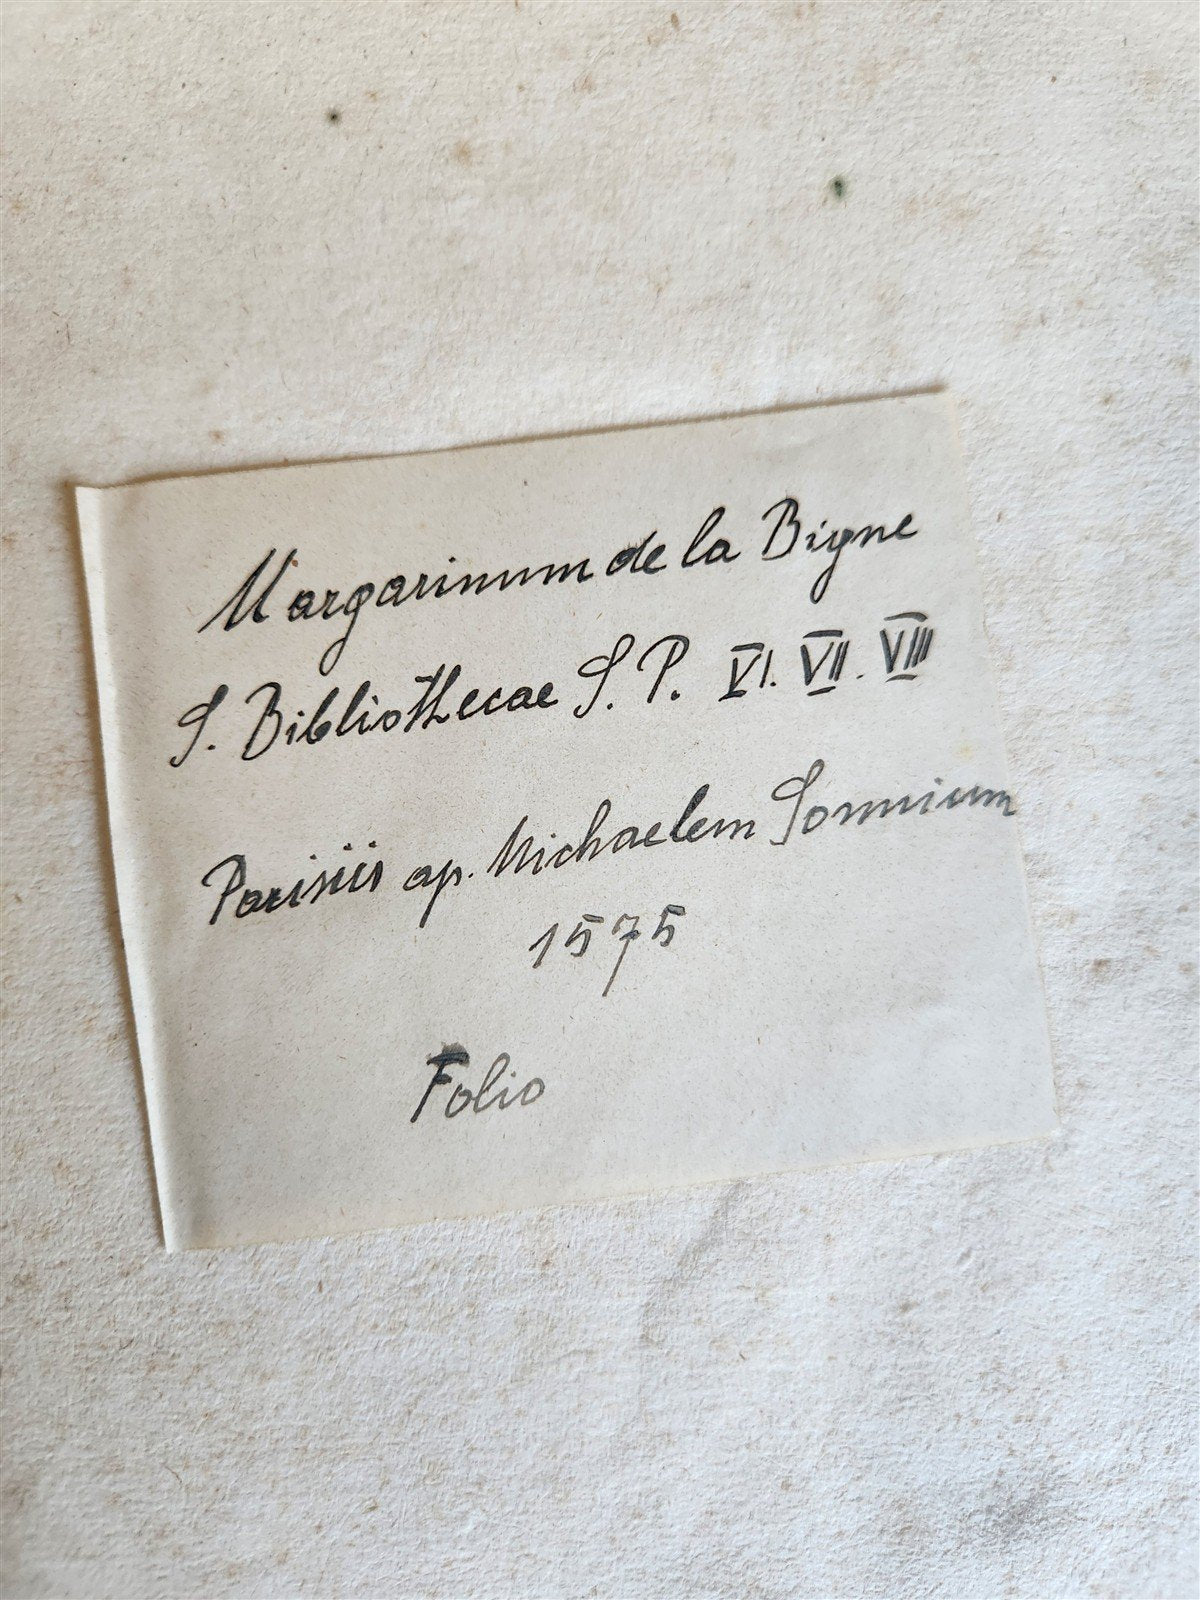 Margarinum de la Bigne
S. Bibliothecae S. P. VI. VII. VIII
Parisiis ap. Michaelem Somnium
1575
Folio